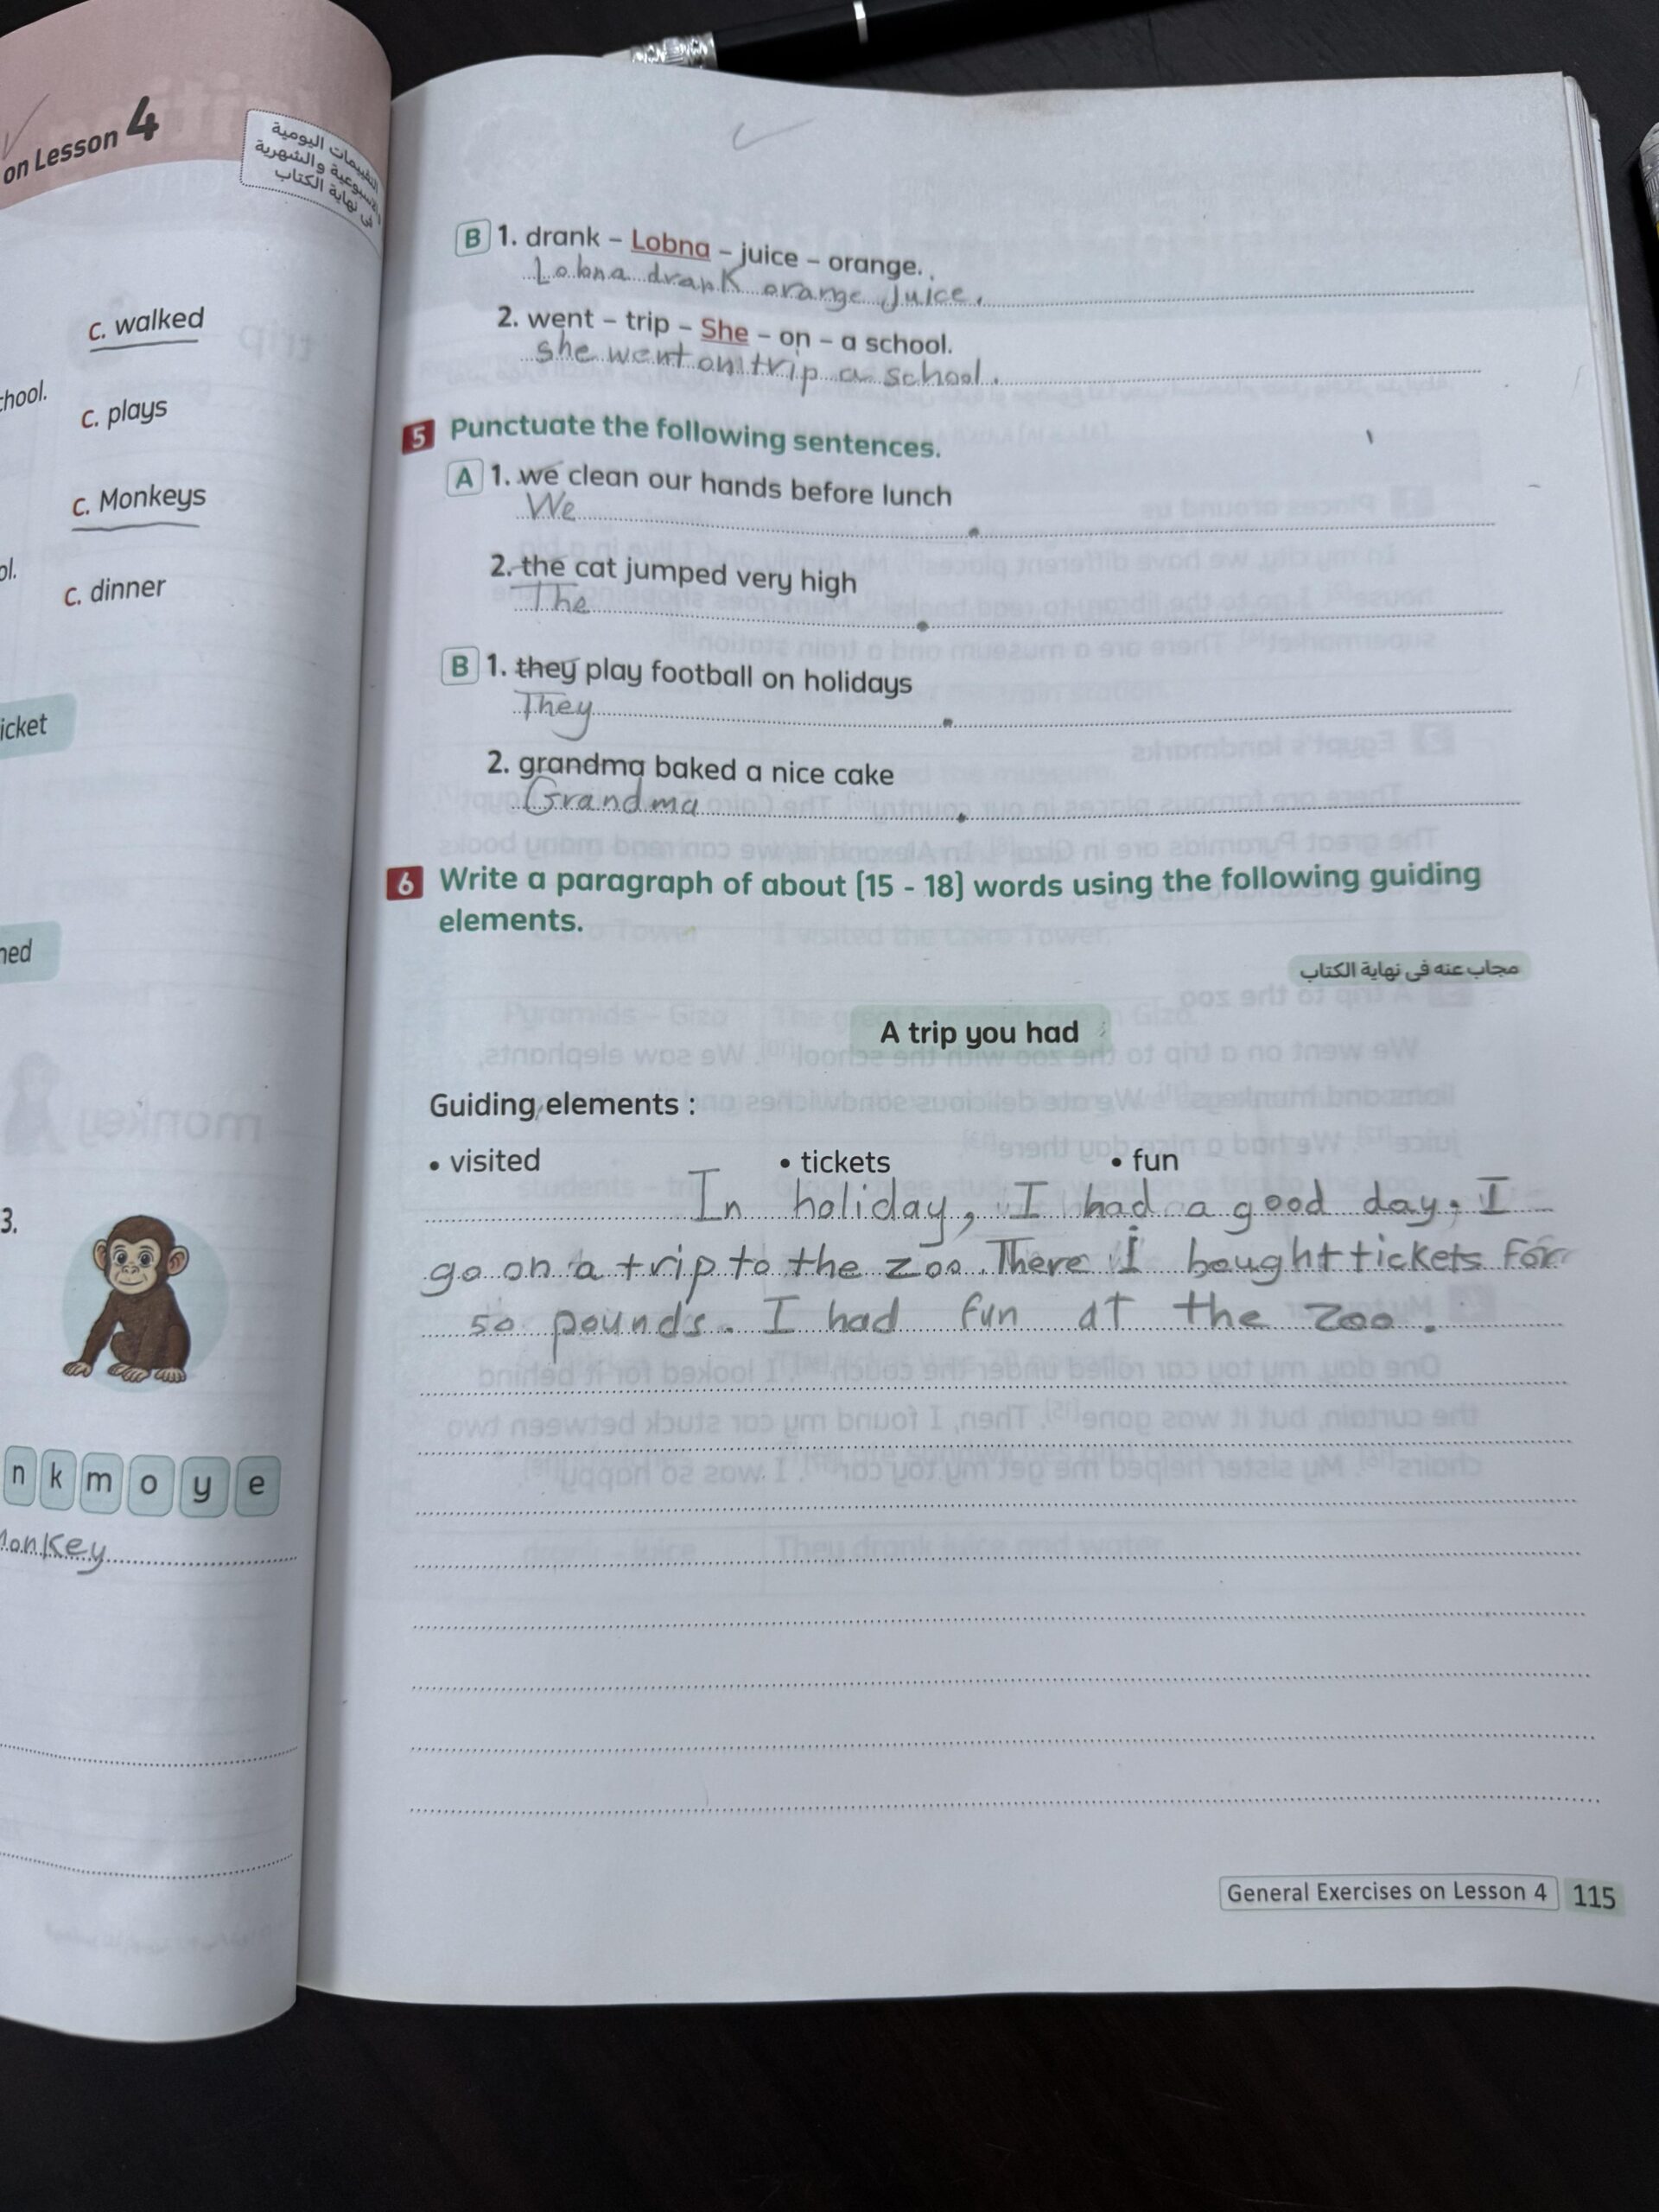 on Lesson 4
التقييمات اليومية
والأسبوعية والشهرية
فى نهاية الكتاب
c. walked
chool.
c. plays
c. Monkeys
ol.
c. dinner
icket
ned
3.
n k m o y e
Monkey
B 1. drank – Lobna – juice – orange.
Lobna drank orange juice.
2. went – trip – She – on – a school.
she went on trip a school.
5 Punctuate the following sentences.
A 1. we clean our hands before lunch
We .
2. the cat jumped very high
The .
B 1. they play football on holidays
They .
2. grandma baked a nice cake
Grandma .
6 Write a paragraph of about (15 - 18) words using the following guiding
elements.
مجاب عنه فى نهاية الكتاب
A trip you had
Guiding elements :
• visited • tickets • fun
In holiday, I had a good day. I
go on a trip to the zoo. There I bought tickets for
50 pounds. I had fun at the zoo.
General Exercises on Lesson 4 115